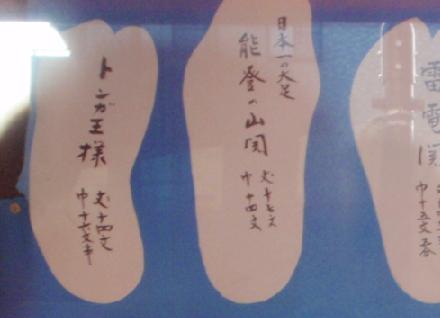 雷電関
巾十五文
日本一の大足
能登の山関
丈十七文
巾十四文
トンガ王様
丈十四文
巾十六文半